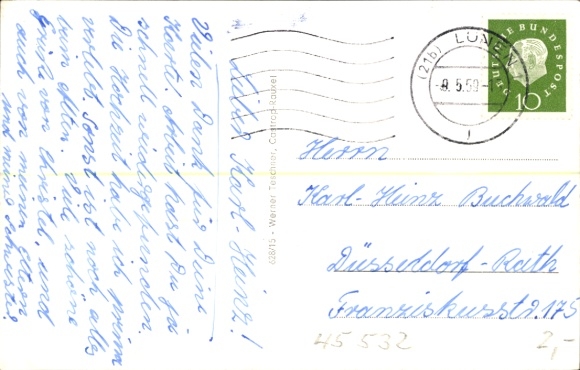 Lieber Karl-Heinz!
Vielen Dank für Deine
Karte! Arbeit hast Du ja
schnell wiedergefunden.
Die Hochzeit habe ich prima
verlebt. Sonst ist noch alles
beim alten. Viele schöne
Grüße von Christel, und
auch von meinen Eltern
und meine Schwester
628/15 - Werner Teschner, Castrop-Rauxel
(21b) LÜNEN
-8.5.59-
DEUTSCHE BUNDESPOST
10
Herrn
Karl-Heinz Buchwald
Düsseldorf-Rath
Franziskusstr. 175
45 532
2,-